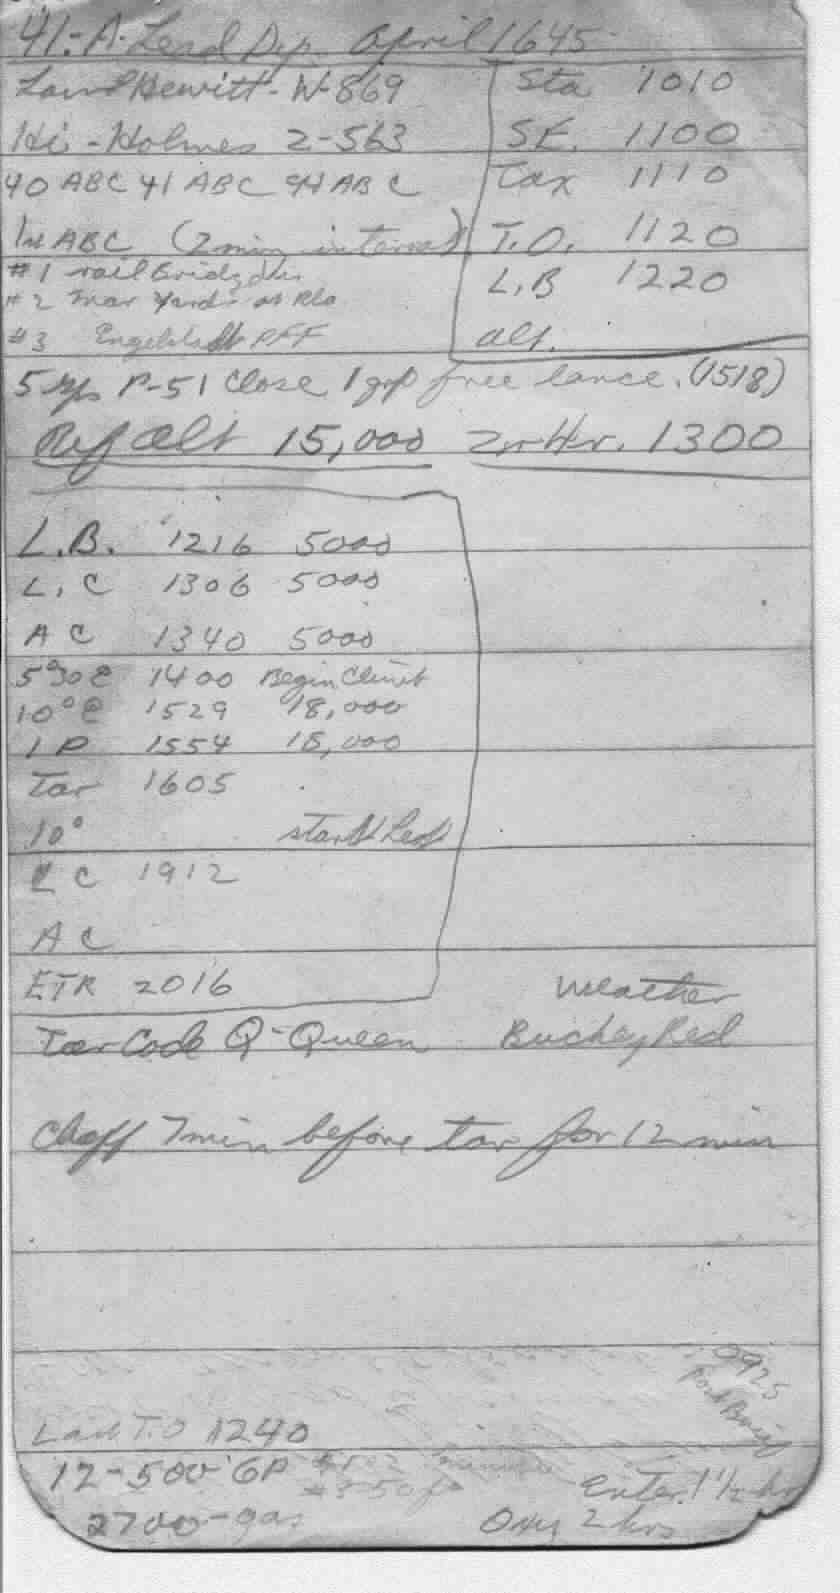 41:-A-Lead Dep April 1645
Low Hewitt - W-869
Hi - Holmes 2-563
40 ABC 41 ABC 94 ABC
1st ABC (2 min interval)
#1 rail Bridge
#2 Mar Yards at
#3 PFF
Sta 1010
S.E. 1100
Tax 1110
T.O. 1120
L.B 1220
alt.
5 gps P-51 Close 1 grp free lance. (1518)
Ref alt 15,000 Zr Hr. 1300
L.B. 1216 5000
L.C 1306 5000
A C 1340 5000
5°30 E 1400 Begin Climb
10° E 1529 18,000
I P 1554 15,000
Tar 1605
10° start Let
L C 1912
A C
ETR 2016
Weather
Tar Code Q-Queen Buckey Red
Chaff 7 min before tar for 12 min
0925
Last T.O 1240
12-500 GP
Enter. 1 1/2 hr
2700-gas Oxy 2 hrs